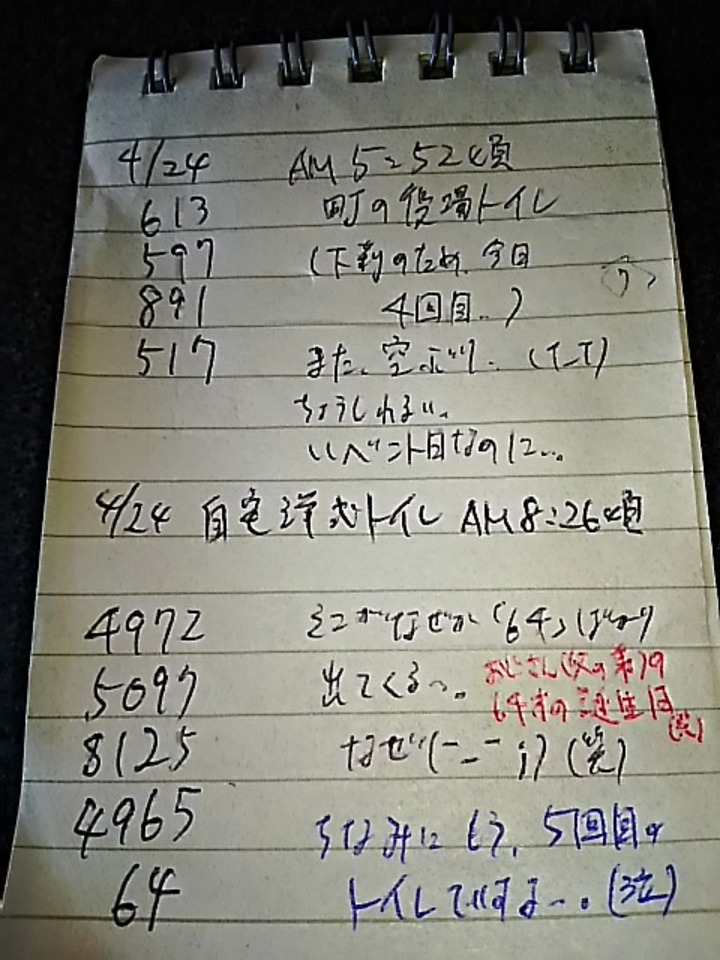 4/24 AM 5:52頃
613 町の役場トイレ
597 (下剤のため、今日
891 4回目..)
517 また、空ぶり.. (T_T)
ちょうしわるい。
イベント日なのに…。
4/24 自宅洋式トイレ AM8:26頃
4972 ミニがなぜか「64」ばかり
5097 出てくる〜。
おじさん(父の弟)の
64才の誕生日
(笑)
8125 なぜ(-_-;)(笑)
4965 ちなみにもう、5回目の
64 トイレですよ〜。(泣)